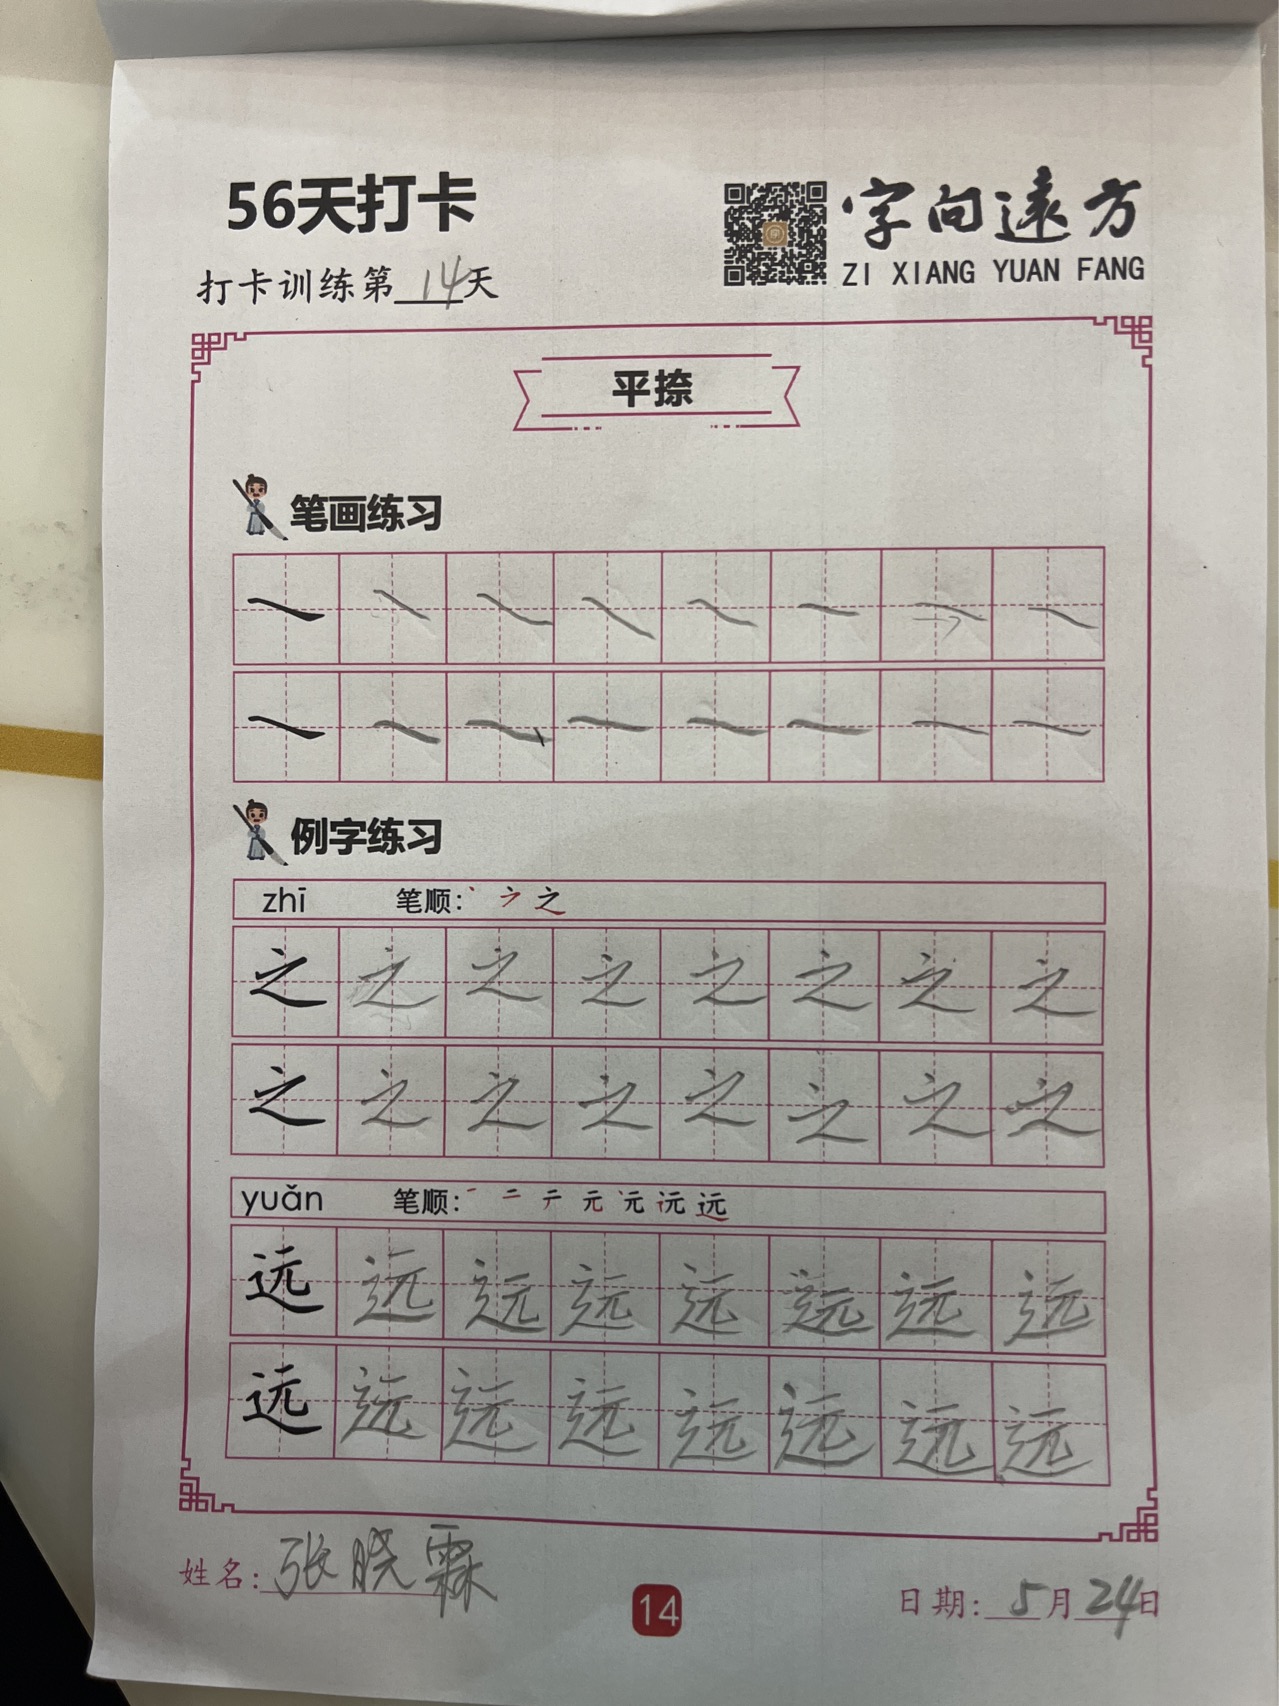 56天打卡
字向遠方
ZI XIANG YUAN FANG
打卡训练第14天
平捺
笔画练习
例字练习
zhī 笔顺: 丶 ㇇ 之
之 之 之 之 之 之 之 之
之 之 之 之 之 之 之 之
yuǎn 笔顺: 一 二 テ 元 远
远 远 远 远 远 远 远 远
远 远 远 远 远 远 远 远
姓名: 张晓霖
14
日期: 5月24日